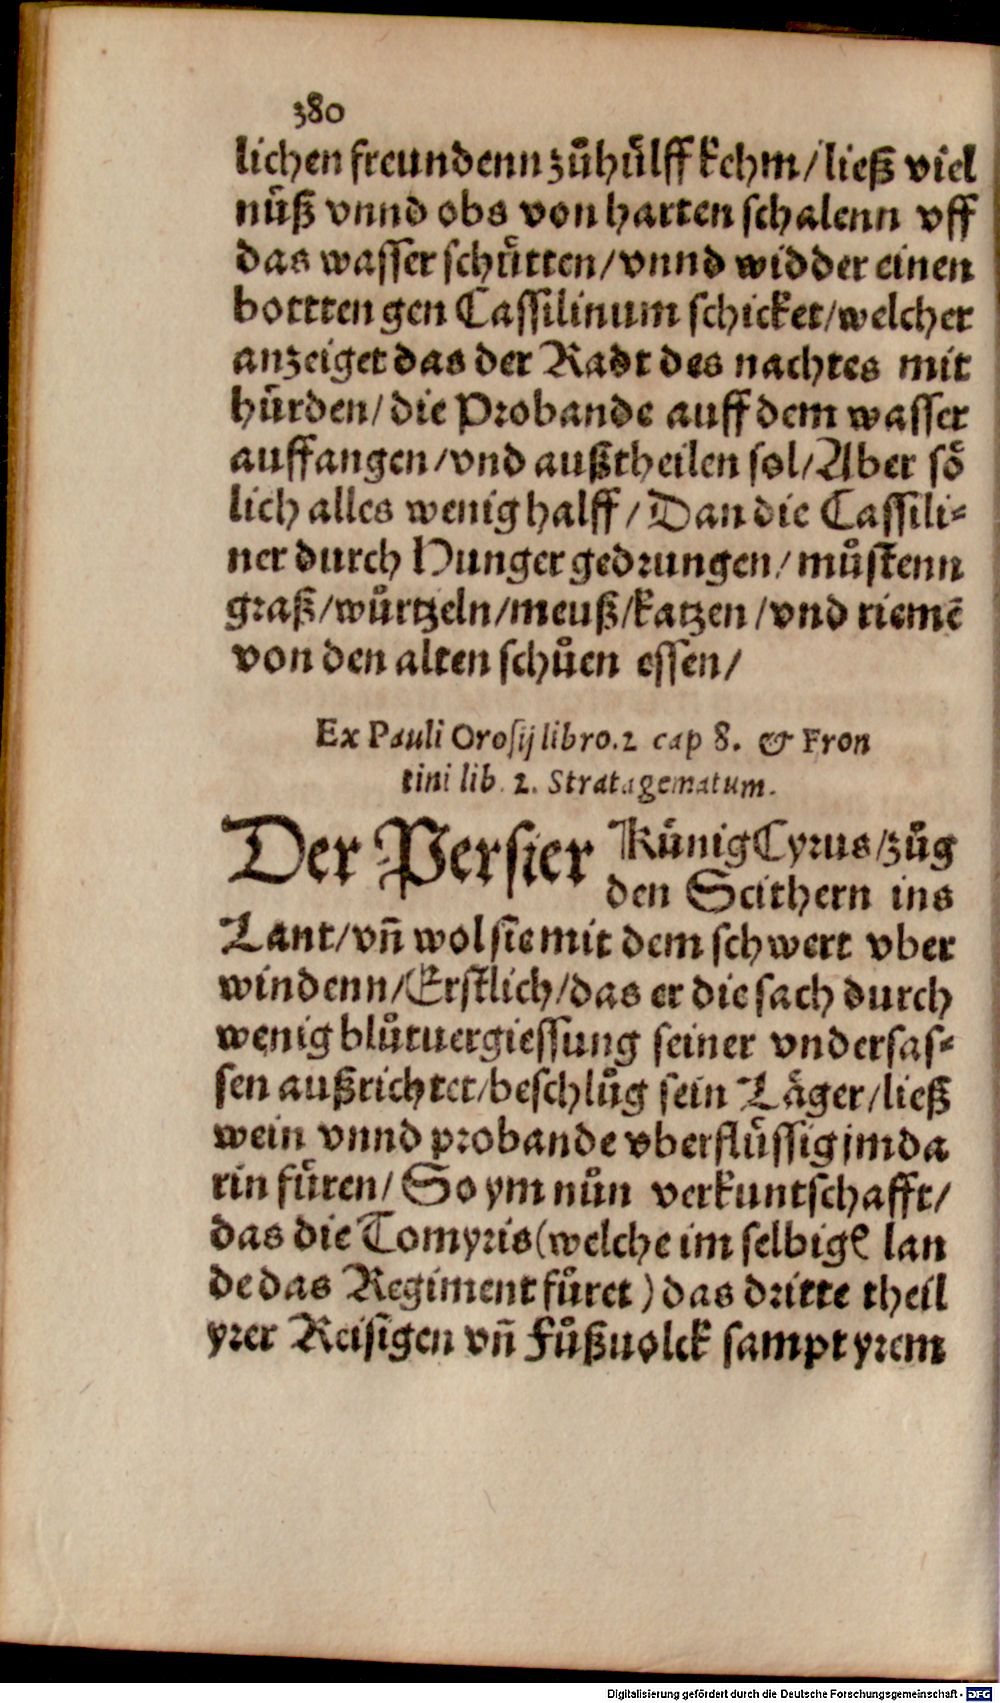 380
lichen freundenn zůhůlff kehm/ließ viel
nůß vnnd obs von harten schalenn vff
das wasser schůtten/vnnd widder einen
bottten gen Cassilinum schicket/welcher
anzeiget das der Radt des nachtes mit
hürden/die Probande auff dem wasser
auffangen/vnd außtheilen sol/Aber sö
lich alles wenig halff/Dan die Cassili=
ner durch Hunger gedrungen/můstenn
graß/wůrtzeln/meuß/katzen/vnd riemē
von den alten schůen essen/
Ex Pauli Orosij libro.2 cap 8. & Fron
tini lib. 2. Stratagematum.
Der Persier Kůnig Cyrus/zůg
den Scithern ins
Lant/vñ wol sie mit dem schwert vber
windenn/Erstlich/das er die sach durch
wenig blůtuergiessung seiner vndersas=
sen außrichtet/beschlůg sein Läger/ließ
wein vnnd probande vberflůssig jm da
rin fůren/So ym nůn verkuntschafft/
das die Tomyris(welche im selbigē lan
de das Regiment fůret)das dritte theil
yrer Reisigen vñ Fůßuolck sampt yrem
Digitalisierung gefördert durch die Deutsche Forschungsgemeinschaft - DFG